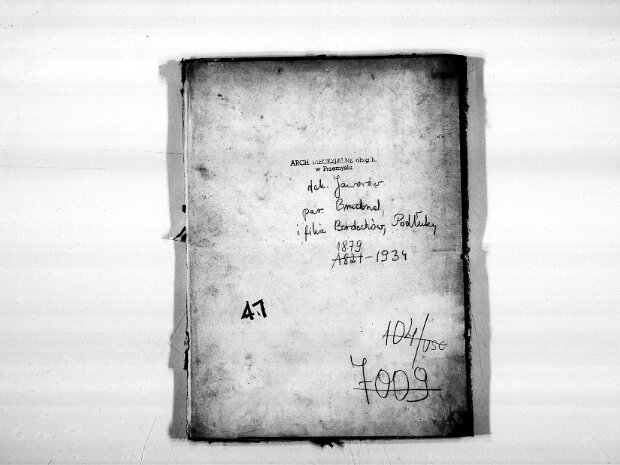 ARCH. DIECEZJALNE ob.g.k.
w Przemyślu
dek. Jaworów
par. Bruchnal,
i filia Berdechów, Podłuby
1879
1821 - 1934
41
104/USC
7009